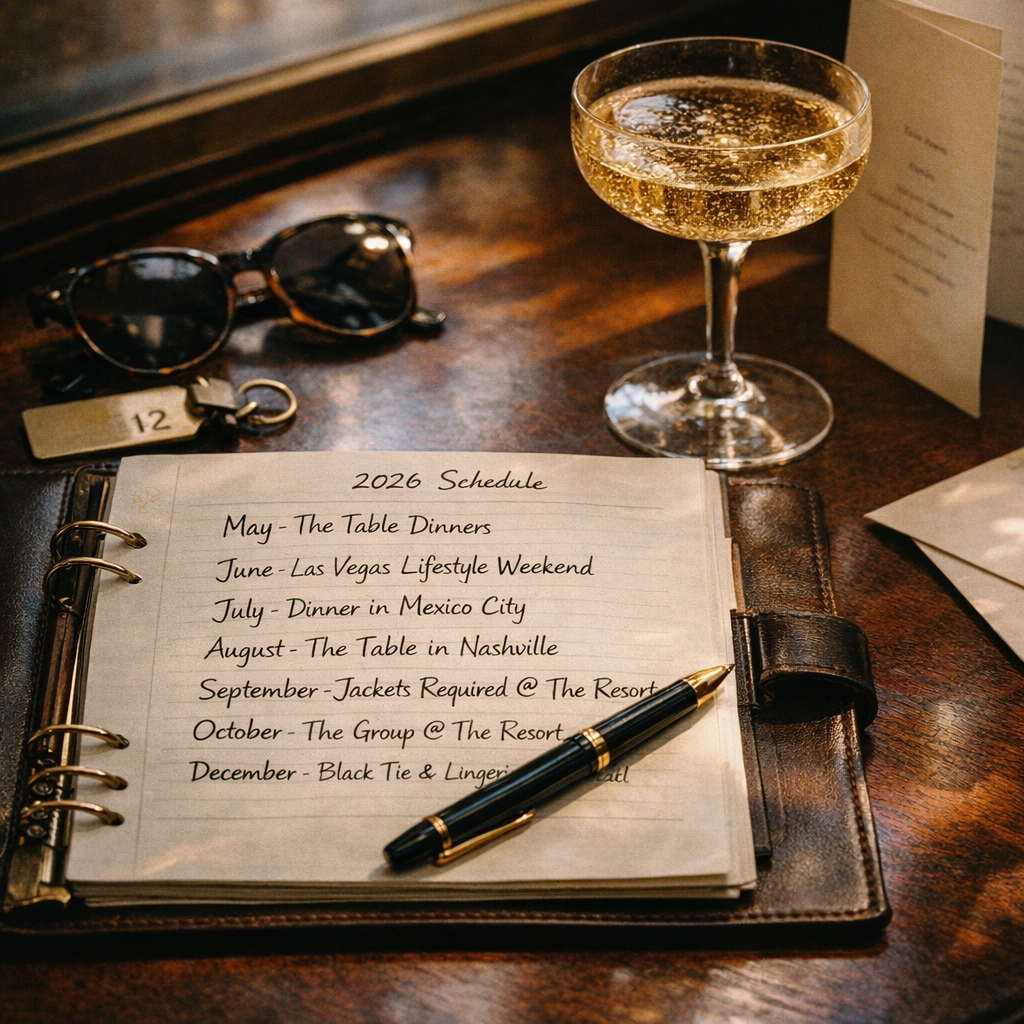 12
2026 Schedule
May - The Table Dinners
June - Las Vegas Lifestyle Weekend
July - Dinner in Mexico City
August - The Table in Nashville
September - Jackets Required @ The Resort
October - The Group @ The Resort
December - Black Tie &